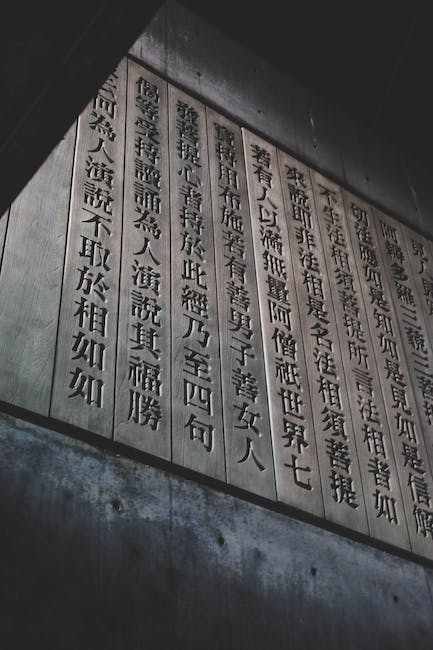 阿耨多羅三藐三
切法應如是知如是見如是信解
不生法相須菩提所言法相者如
來說即非法相是名法相須菩提
若有人以滿無量阿僧祇世界七
寶持用布施若有善男子善女人
發菩提心者持於此經乃至四句
偈等受持讀誦為人演說其福勝
何為人演說不取於相如如